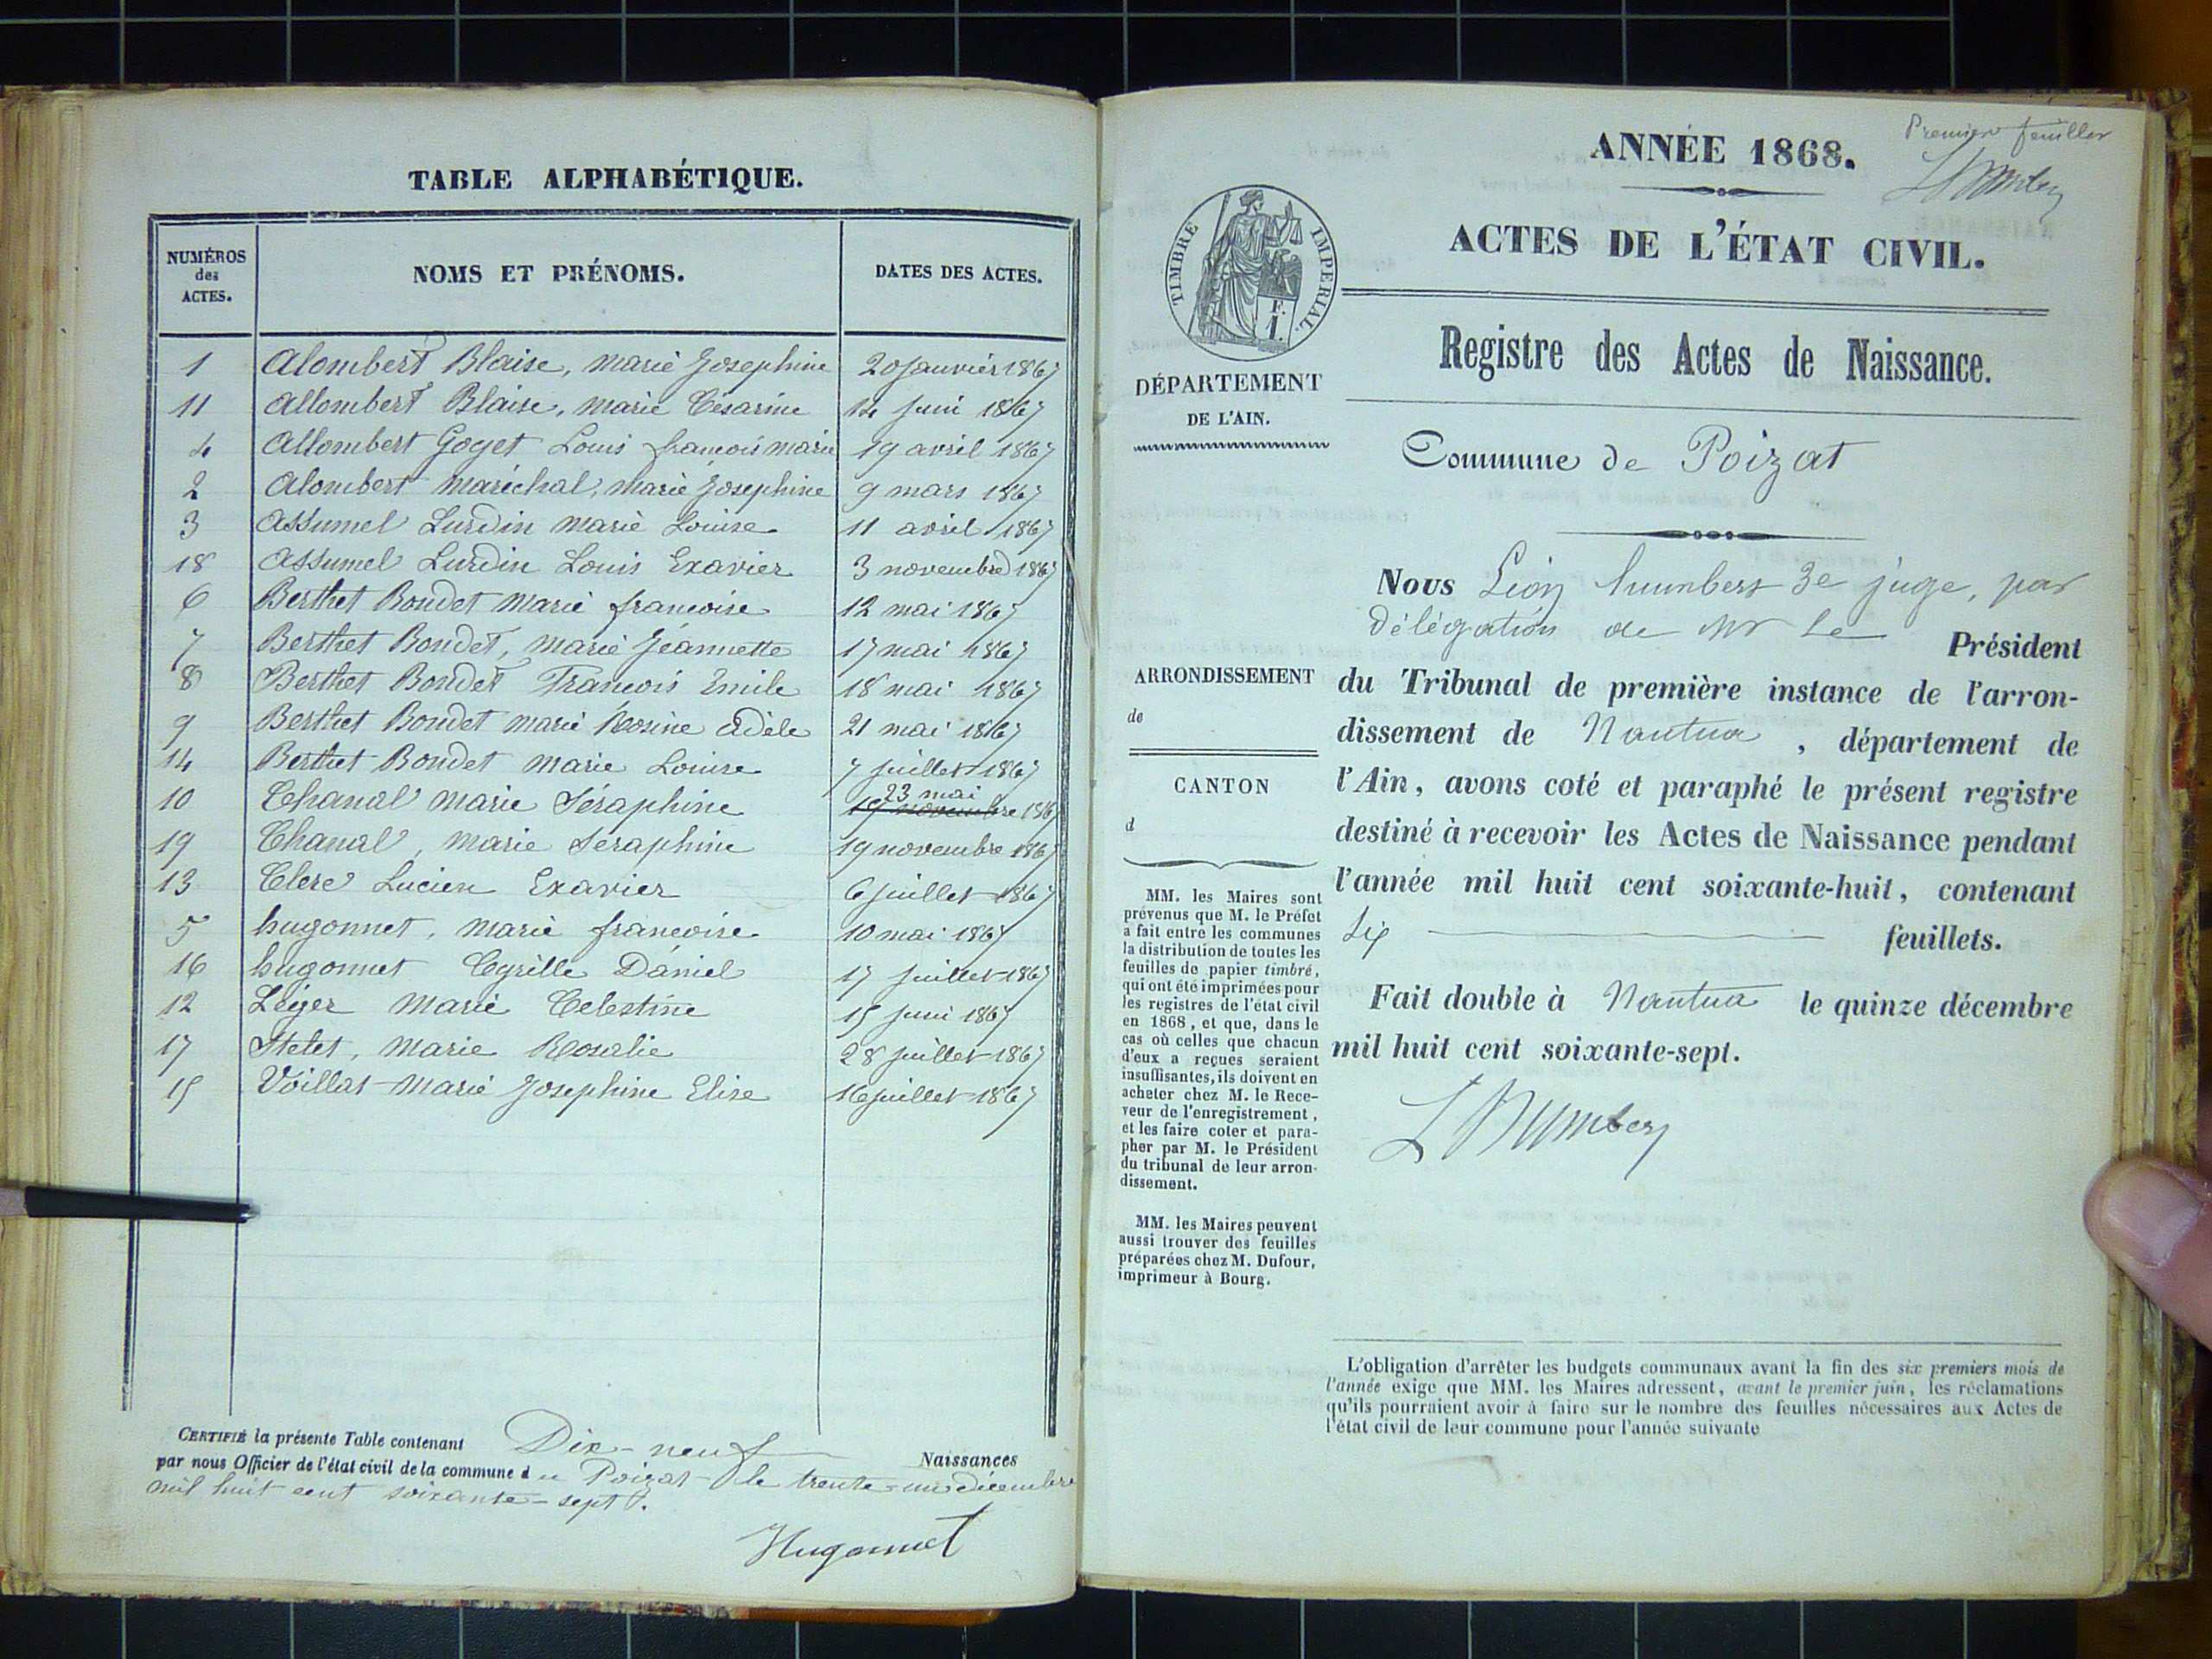 TABLE ALPHABÉTIQUE.
NUMÉROS des ACTES. NOMS ET PRÉNOMS. DATES DES ACTES.
1 Alombert Blaise, Marie Josephine 20 janvier 1867
11 Allombert Blaise, Marie Césarine 14 juin 1867
4 Allombert Goget Louis françois marie 19 avril 1867
2 Alombert Maréchal, Marie Josephine 9 mars 1867
3 Assumel Lurdin Marie Louise 11 avril 1867
18 Assumel Lurdin Louis Exavier 3 novembre 1867
6 Berthet Bondet Marie françoise 12 mai 1867
7 Berthet Bondet, Marie Jéannette 17 mai 1867
8 Berthet Bondet François Emile 18 mai 1867
9 Berthet Bondet Marie Rosine Adèle 21 mai 1867
14 Berthet Bondet Marie Louise 7 juillet 1867
10 Chanal Marie Séraphine 23 mai 19 novembre 1867
19 Chanal, Marie Séraphine 19 novembre 1867
13 Clerc Lucien Exavier 6 juillet 1867
5 hugonnet, Marie françoise 10 mai 1867
16 hugonnet Cyrille Daniel 17 juillet 1867
12 Léger Marie Celestine 15 juin 1867
17 Stelet, Marie Rosalie 28 juillet 1867
15 Voillat Marie Josephine Elise 16 juillet 1867
CERTIFIÉ la présente Table contenant Dix-neuf Naissances
par nous Officier de l'état civil de la commune du Poizat le trente-un décembre
mil huit cent soixante-sept.
Hugonnet
Premier feuillet
LHumbert
ANNÉE 1868.
TIMBRE IMPÉRIAL.
F.
1.
ACTES DE L'ÉTAT CIVIL.
DÉPARTEMENT
DE L'AIN.
Registre des Actes de Naissance.
Commune de Poizat
Nous Léon humbert 3e juge, par
délégation de Mr Le Président
du Tribunal de première instance de l'arron-
dissement de Nantua, département de
l'Ain, avons coté et paraphé le présent registre
destiné à recevoir les Actes de Naissance pendant
l'année mil huit cent soixante-huit, contenant
Six feuillets.
Fait double à Nantua le quinze décembre
mil huit cent soixante-sept.
LHumbert
ARRONDISSEMENT
de
CANTON
d
MM. les Maires sont
prévenus que M. le Préfet
a fait entre les communes
la distribution de toutes les
feuilles de papier timbré,
qui ont été imprimées pour
les registres de l'état civil
en 1868, et que, dans le
cas où celles que chacun
d'eux a reçues seraient
insuffisantes, ils doivent en
acheter chez M. le Rece-
veur de l'enregistrement,
et les faire coter et para-
pher par M. le Président
du tribunal de leur arron-
dissement.
MM. les Maires peuvent
aussi trouver des feuilles
préparées chez M. Dufour,
imprimeur à Bourg.
L'obligation d'arrêter les budgets communaux avant la fin des six premiers mois de
l'année exige que MM. les Maires adressent, avant le premier juin, les réclamations
qu'ils pourraient avoir à faire sur le nombre des feuilles nécessaires aux Actes de
l'état civil de leur commune pour l'année suivante